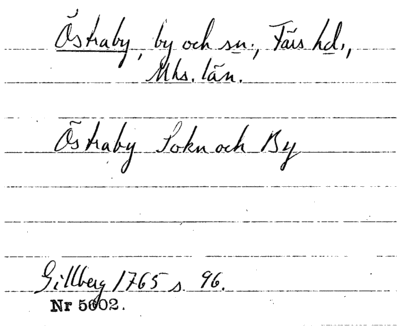 Östraby, by och sn., Färs hd.,
Mhs. län.
Östraby Sokn och By
Gillberg 1765 s. 96.
Nr 5602.